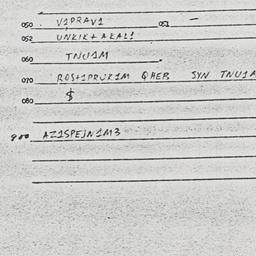 050 . V1PRAV1 051 —
052 UNKIK + AKAL1
060 TNU1M .
070 ROS+1PRUK1M QHEP. SYN TNU1A
080 $
900 AZ1SPEJN1M3